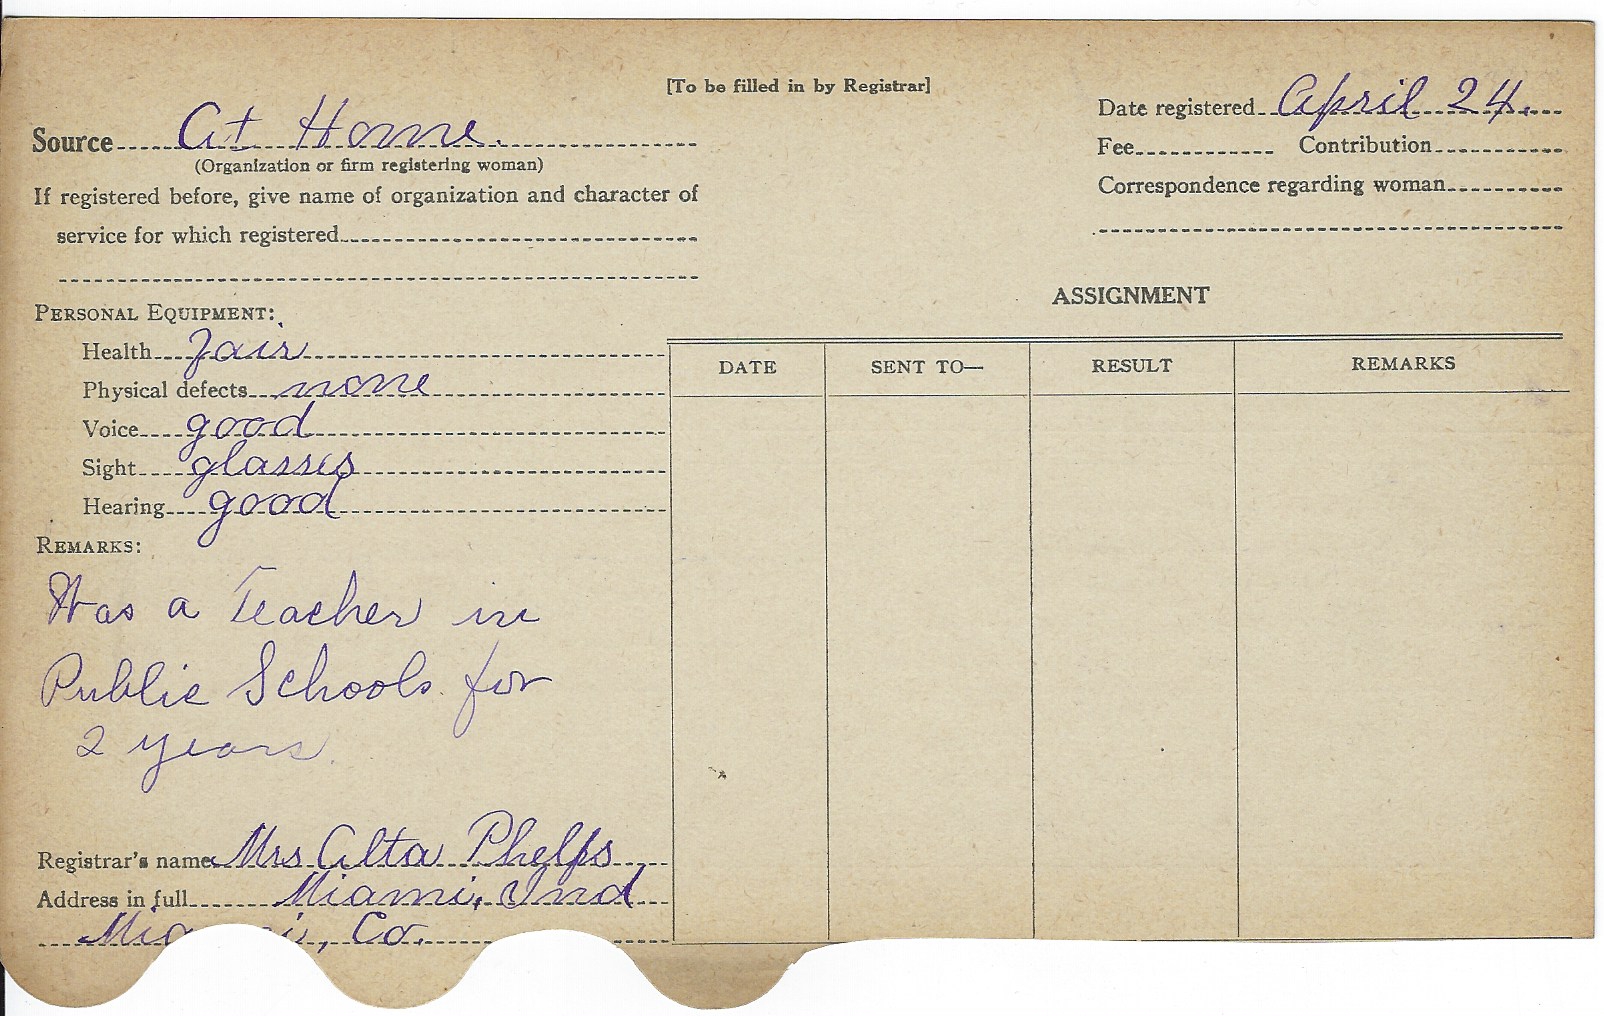 [To be filled in by Registrar]
Source At Home.
(Organization or firm registering woman)
If registered before, give name of organization and character of
service for which registered
Date registered April 24.
Fee Contribution
Correspondence regarding woman
PERSONAL EQUIPMENT:
Health fair
Physical defects none
Voice good
Sight glasses
Hearing good
REMARKS:
Was a Teacher in
Public Schools for
2 years.
Registrar's name Mrs Alta Phelps
Address in full Miami, Ind
Miami, Co.
ASSIGNMENT
DATE SENT TO— RESULT REMARKS